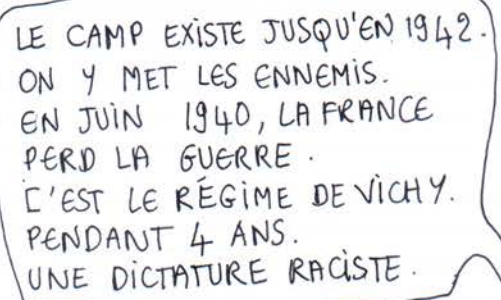 LE CAMP EXISTE JUSQU'EN 1942.
ON Y MET LES ENNEMIS.
EN JUIN 1940, LA FRANCE
PERD LA GUERRE.
C'EST LE RÉGIME DE VICHY.
PENDANT 4 ANS.
UNE DICTATURE RACISTE.